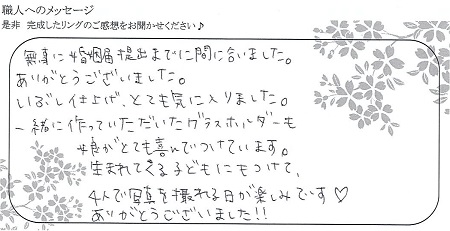 職人へのメッセージ
是非 完成したリングのご感想をお聞かせください♪
無事に婚姻届提出までに間に合いました。
ありがとうございました。
いぶし仕上げ、とても気に入りました。
一緒に作っていただいたグラスホルダーも
娘がとても喜んでつけています。
生まれてくる子どもにもつけて、
4人で写真を撮れる日が楽しみです♡
ありがとうございました!!